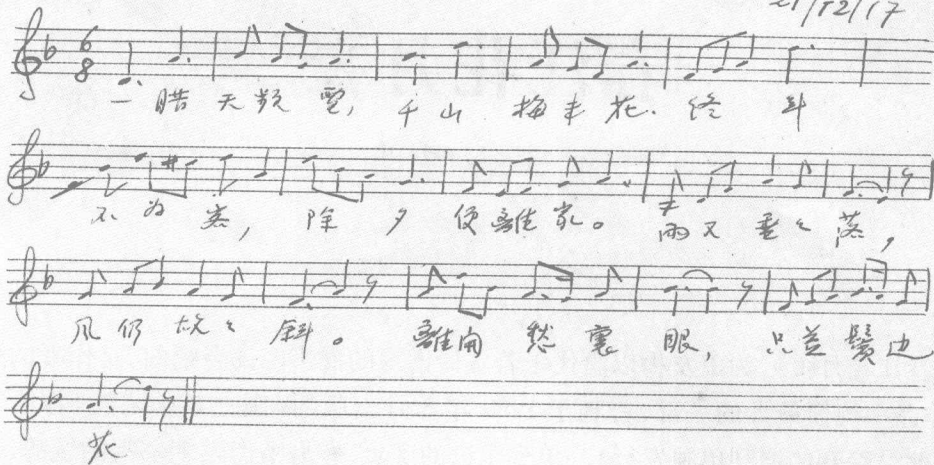 21/12/17
6
8
一 腊 天 频 雪, 千 山 梅 花. 终 年
不 为 客, 除 夕 便 離 家。 雨 又 垂々 落,
风 仍 故々 斜。 難 開 愁 裏 眼, 只 益 鬓 边
花